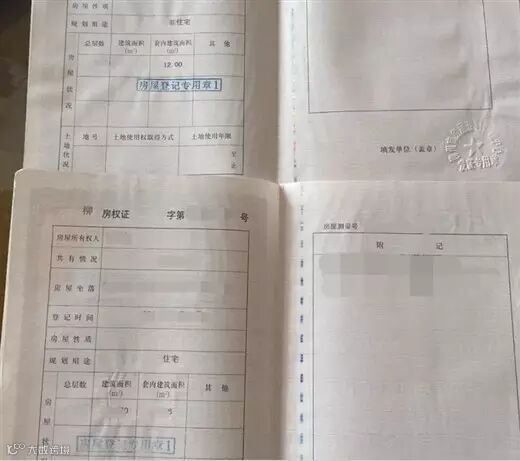 房屋性质
规划用途 非住宅
房屋状况 总层数 建筑面积(m²) 套内建筑面积(m²) 其他
12.00
房屋登记专用章1
土地状况 地号 土地使用权取得方式 土地使用年限
至 止
填发单位（盖章）
柳 房权证 字第 号
房屋所有权人
共有情况
房屋坐落
登记时间
房屋性质
规划用途 住宅
房屋状 总层数 建筑面积(m²) 套内建筑面积(m²) 其他
房屋登记专用章1
房屋测量号
附记
大成跨境